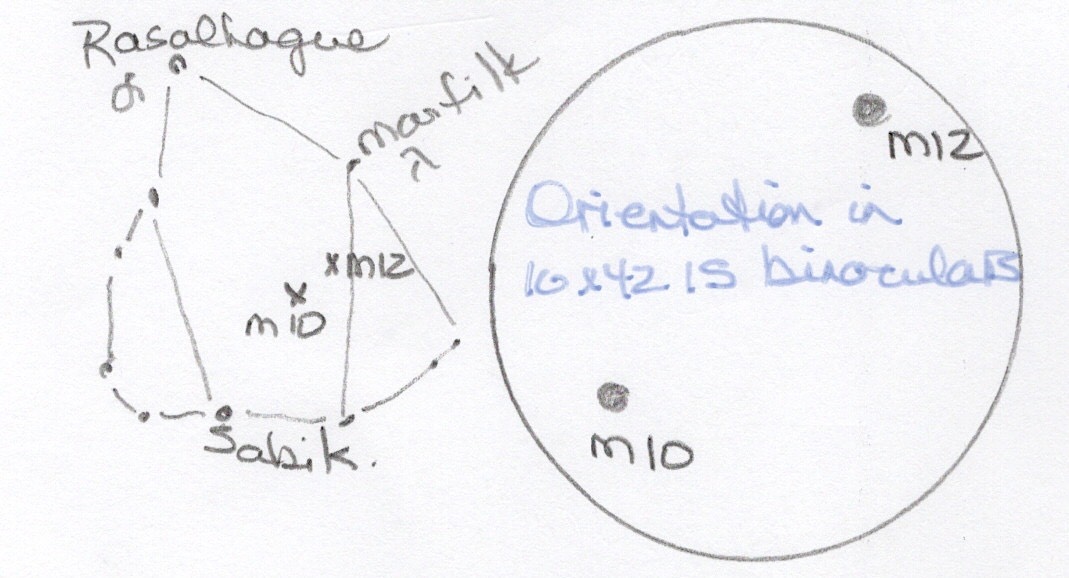 Rasalhague
α
marfilk
λ
x m12
x
m10
Sabik.
m12
Orientation in
10x42 IS binoculars
m10